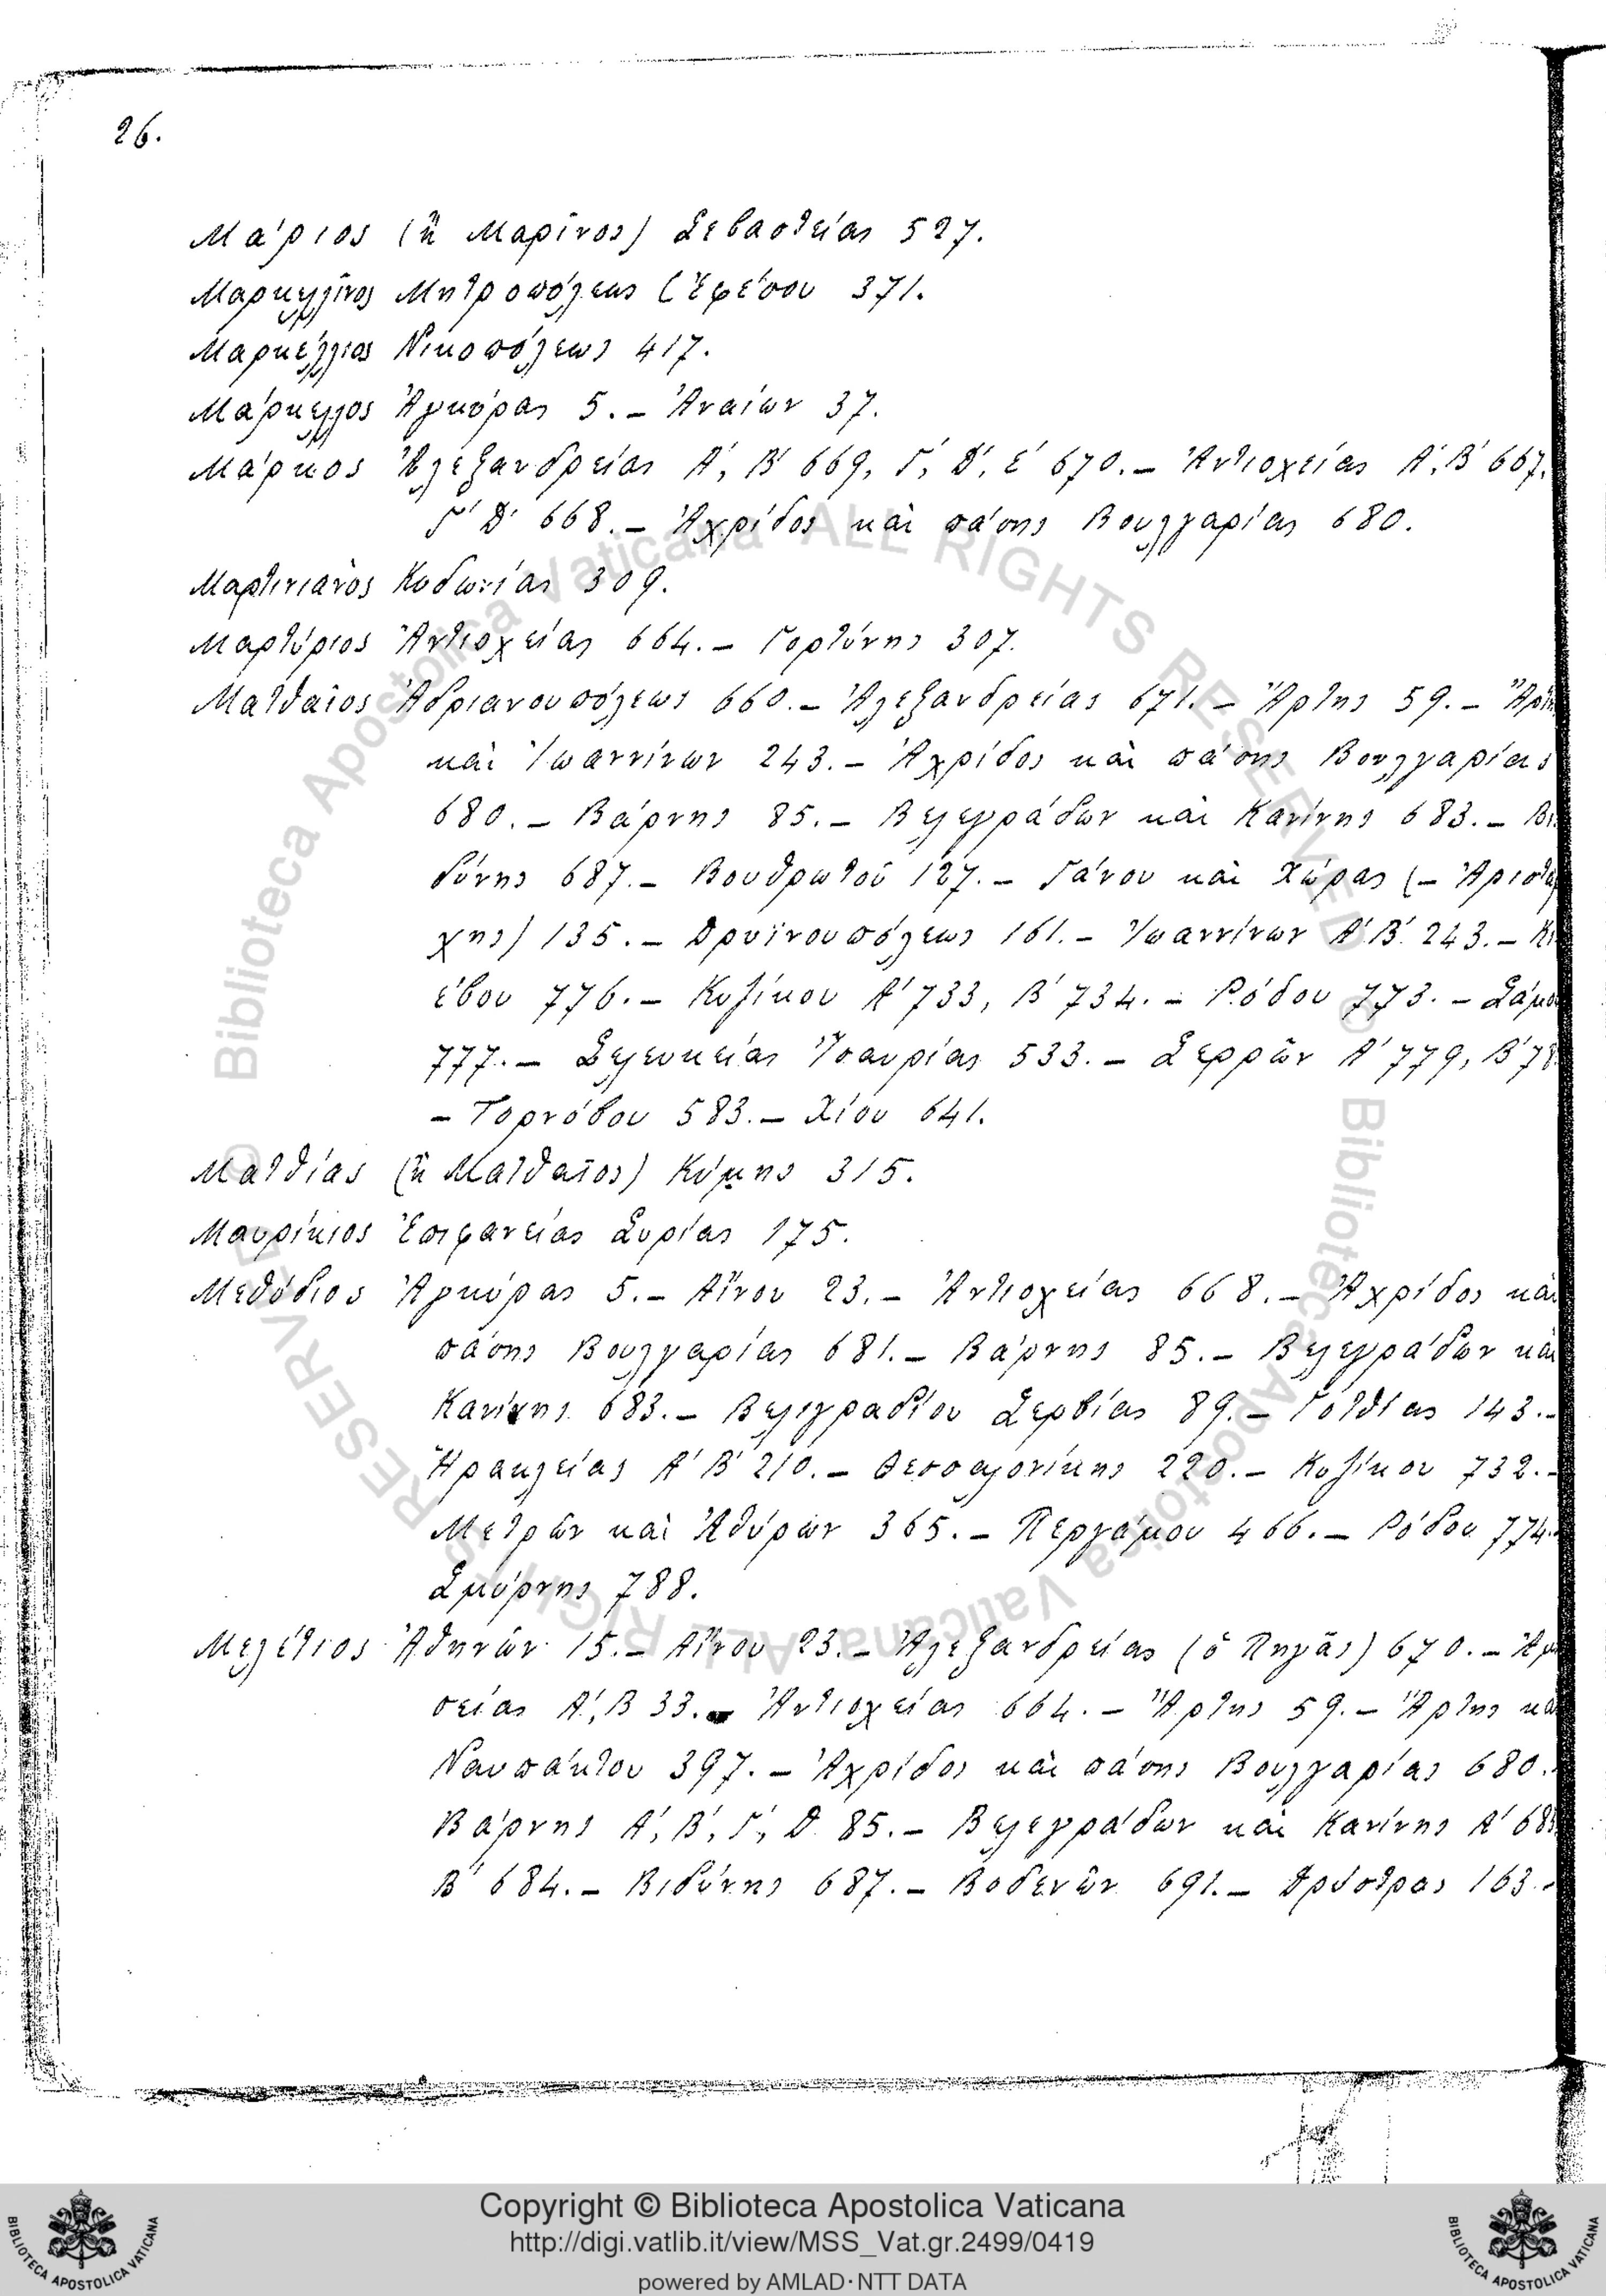 26.
Μάριος (ἢ Μαρῖνος) Σεβαστείας 527.
Μαρκελλῖνος Μητροπόλεως (Ἐφέσου 371.
Μαρκέλλιος Νικοπόλεως 417.
Μάρκελλος Ἀγκύρας 5. – Ἀναίων 37.
Μάρκος Ἀλεξανδρείας Α΄, Β΄ 669, Γ΄, Δ΄, Ε΄ 670. – Ἀντιοχείας Α΄, Β΄ 667,
Γ΄ Δ΄ 668. – Ἀχρίδος καὶ πάσης Βουλγαρίας 680.
Μαρτινιανὸς Κυδωνίας 309.
Μαρτύριος Ἀντιοχείας 664. – Γορτύνης 307.
Ματθαῖος Ἀδριανουπόλεως 660. – Ἀλεξανδρείας 671. – Ἄρτης 59. – Ἄρτης
καὶ Ἰωαννίνων 243. – Ἀχρίδος καὶ πάσης Βουλγαρίας
680. – Βάρνης 85. – Βελεγράδων καὶ Κανίνης 683. – Βι
δύνης 687. – Βουθρωτοῦ 127. – Γάνου καὶ Χώρας (– Ἀριστά
χης) 135. – Δρυϊνουπόλεως 161. – Ἰωαννίνων Α΄ Β΄ 243. – Κι
έβου 776. – Κυζίκου Α΄ 733, Β΄ 734. – Ρόδου 773. – Σάμου
777. – Σελευκείας Ἰσαυρίας 533. – Σερρῶν Α΄ 779, Β΄ 78
– Τορνόβου 583. – Χίου 641.
Ματθίας (ἢ Ματθαῖος) Κύμης 315.
Μαυρίκιος Ἐπιφανείας Συρίας 175.
Μεθόδιος Ἀγκύρας 5. – Αἴνου 23. – Ἀντιοχείας 668. – Ἀχρίδος καὶ
πάσης Βουλγαρίας 681. – Βάρνης 85. – Βελεγράδων καὶ
Κανίνης 683. – Βελιγραδίου Σερβίας 89. – Γοτθίας 143. –
Ἡρακλείας Α΄ Β΄ 210. – Θεσσαλονίκης 220. – Κυζίκου 732. –
Μετρῶν καὶ Ἀθύρων 365. – Περγάμου 466. – Ρόδου 774. –
Σμύρνης 788.
Μελέτιος Ἀθηνῶν 15. – Αἴνου 23. – Ἀλεξανδρείας (ὁ Πηγᾶς) 670. – Ἀμα
σείας Α΄, Β 33. – Ἀντιοχείας 664. – Ἄρτης 59. – Ἄρτης καὶ
Ναυπάκτου 397. – Ἀχρίδος καὶ πάσης Βουλγαρίας 680.
Βάρνης Α΄, Β΄, Γ΄, Δ 85. – Βελεγράδων καὶ Κανίνης Α΄ 683
Β΄ 684. – Βιδύνης 687. – Βοδενῶν 691. – Δρύστρας 163. –
© Biblioteca Apostolica Vaticana ALL RIGHTS RESERVED
Copyright © Biblioteca Apostolica Vaticana
http://digi.vatlib.it/view/MSS_Vat.gr.2499/0419
powered by AMLAD·NTT DATA
BIBLIOTECA APOSTOLICA VATICANA
BIBLIOTECA APOSTOLICA VATICANA